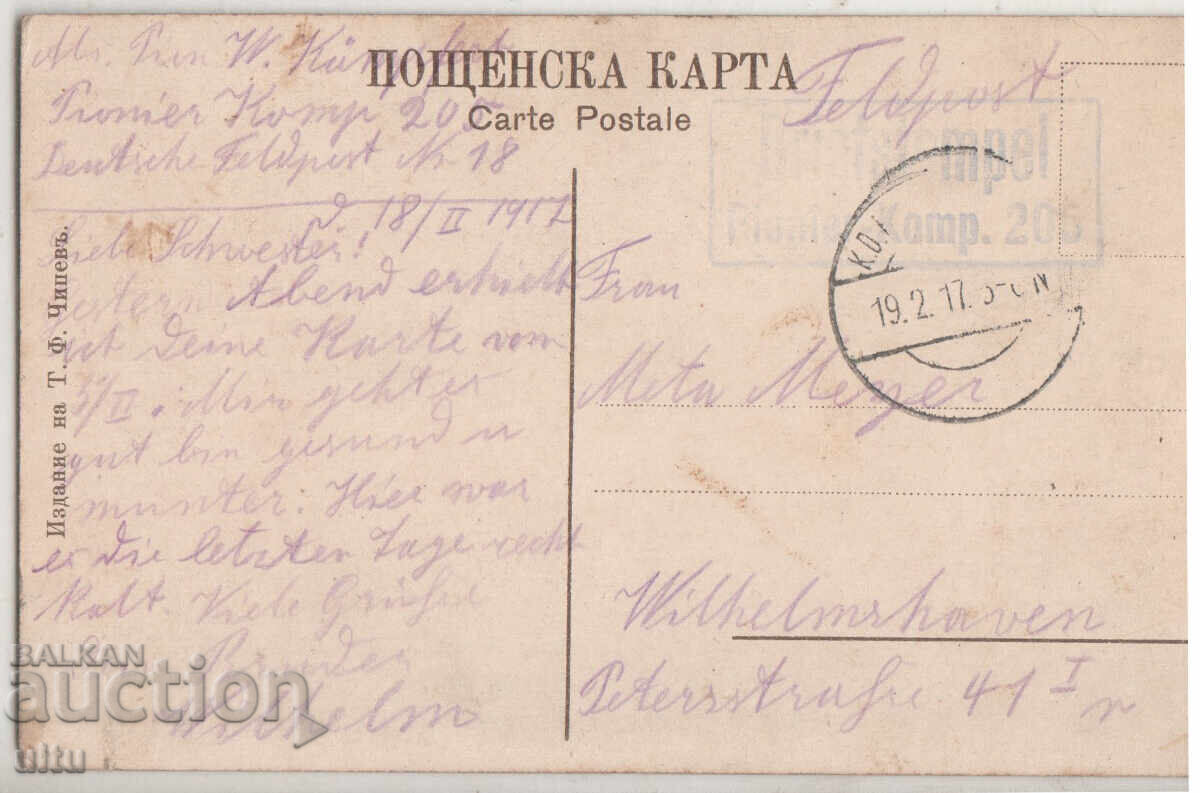 Abs. Pion W.
Pionier Komp 205
Deutsche Feldpost Nr 18
d 18/II 1917
Liebe Schwester!
Gestern Abend erhielt
ich Deine Karte vom
/II. Mir geht es
gut bin gesund u
munter. Hier war
es die letzten Tage recht
kalt. Viele Grüße
Bruder
Wilhelm
Издание на Т. Ф. Чипевъ.
ПОЩЕНСКА КАРТА
Carte Postale
Feldpost
Briefstempel
Pionier-Komp. 205
K.D.
19.2.17.
Frau
Meta Meyer
Wilhelmshaven
Petersstraße 41 I r
BALKAN
auction
ultu